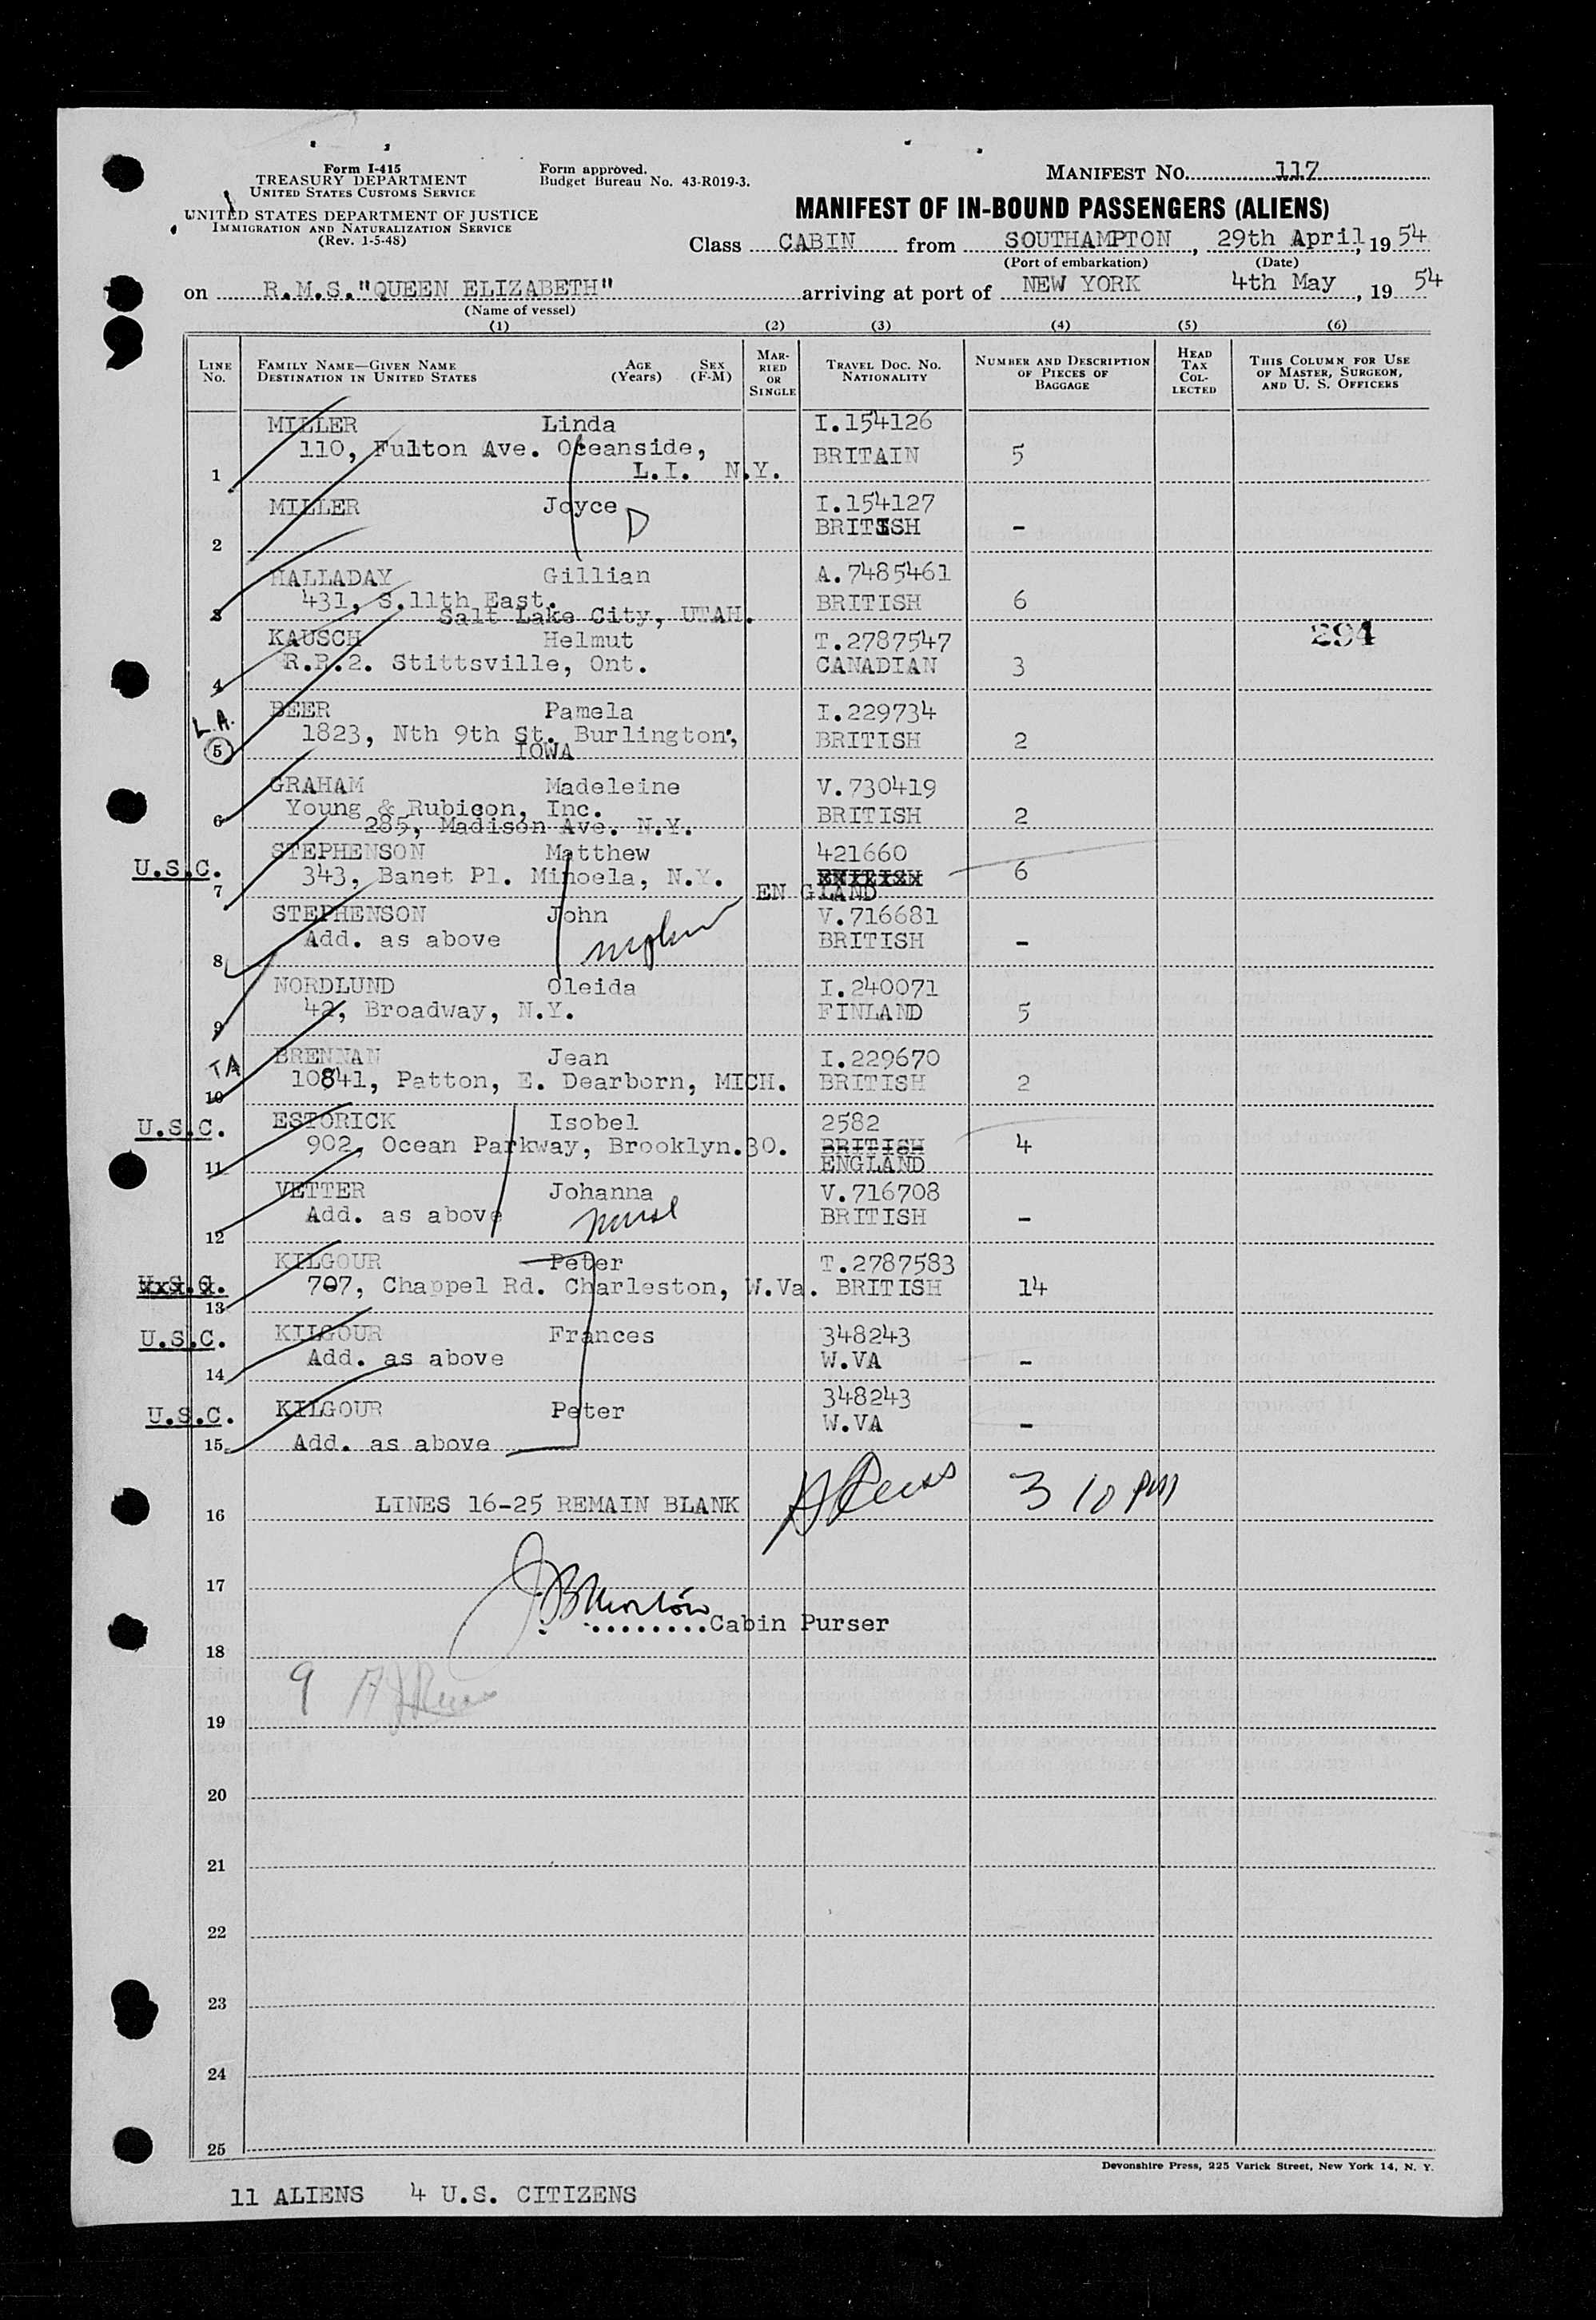 Form I-415
TREASURY DEPARTMENT
UNITED STATES CUSTOMS SERVICE
UNITED STATES DEPARTMENT OF JUSTICE
IMMIGRATION AND NATURALIZATION SERVICE
(Rev. 1-5-48)
Form approved.
Budget Bureau No. 43-R019-3.
MANIFEST NO. 117
MANIFEST OF IN-BOUND PASSENGERS (ALIENS)
Class CABIN from SOUTHAMPTON, 29th April, 19 54
(Port of embarkation) (Date)
on R.M.S."QUEEN ELIZABETH" arriving at port of NEW YORK 4th May, 19 54
(Name of vessel)
(1) (2) (3) (4) (5) (6)
LINE No. FAMILY NAME—GIVEN NAME DESTINATION IN UNITED STATES AGE (Years) SEX (F-M) MARRIED OR SINGLE TRAVEL DOC. NO. NATIONALITY NUMBER AND DESCRIPTION OF PIECES OF BAGGAGE HEAD TAX COLLECTED THIS COLUMN FOR USE OF MASTER, SURGEON, AND U. S. OFFICERS
MILLER Linda I.154126
110, Fulton Ave. Oceanside, BRITAIN 5
1 L.I. N.Y.
MILLER Joyce I.154127
D BRITISH -
2
HALLADAY Gillian A.7485461
431, S.11th East. BRITISH 6
3 Salt Lake City, UTAH.
KAUSCH Helmut T.2787547 294
R.R.2. Stittsville, Ont. CANADIAN 3
4
L.A. BEER Pamela I.229734
5 1823, Nth 9th St. Burlington, BRITISH 2
IOWA
GRAHAM Madeleine V.730419
Young & Rubicon, Inc. BRITISH 2
6 285, Madison Ave. N.Y.
U.S.C. STEPHENSON Matthew 421660
7 343, Banet Pl. Minoela, N.Y. BRITISH 6
ENGLAND
STEPHENSON John V.716681
8 Add. as above BRITISH -
NORDLUND Oleida I.240071
9 42, Broadway, N.Y. FINLAND 5
TA BRENNAN Jean I.229670
10 10841, Patton, E. Dearborn, MICH. BRITISH 2
U.S.C. ESTORICK Isobel 2582
902, Ocean Parkway, Brooklyn.30. BRITISH 4
11 ENGLAND
VETTER Johanna V.716708
12 Add. as above nurse BRITISH -
KILGOUR Peter T.2787583
U.S.C. 707, Chappel Rd. Charleston, W.Va. BRITISH 14
13
U.S.C. KILGOUR Frances 348243
14 Add. as above W.VA -
U.S.C. KILGOUR Peter 348243
15 Add. as above W.VA -
16 LINES 16-25 REMAIN BLANK 3 10 pm
17
Cabin Purser
18
9
19
20
21
22
23
24
25
Devonshire Press, 225 Varick Street, New York 14, N. Y.
11 ALIENS 4 U.S. CITIZENS